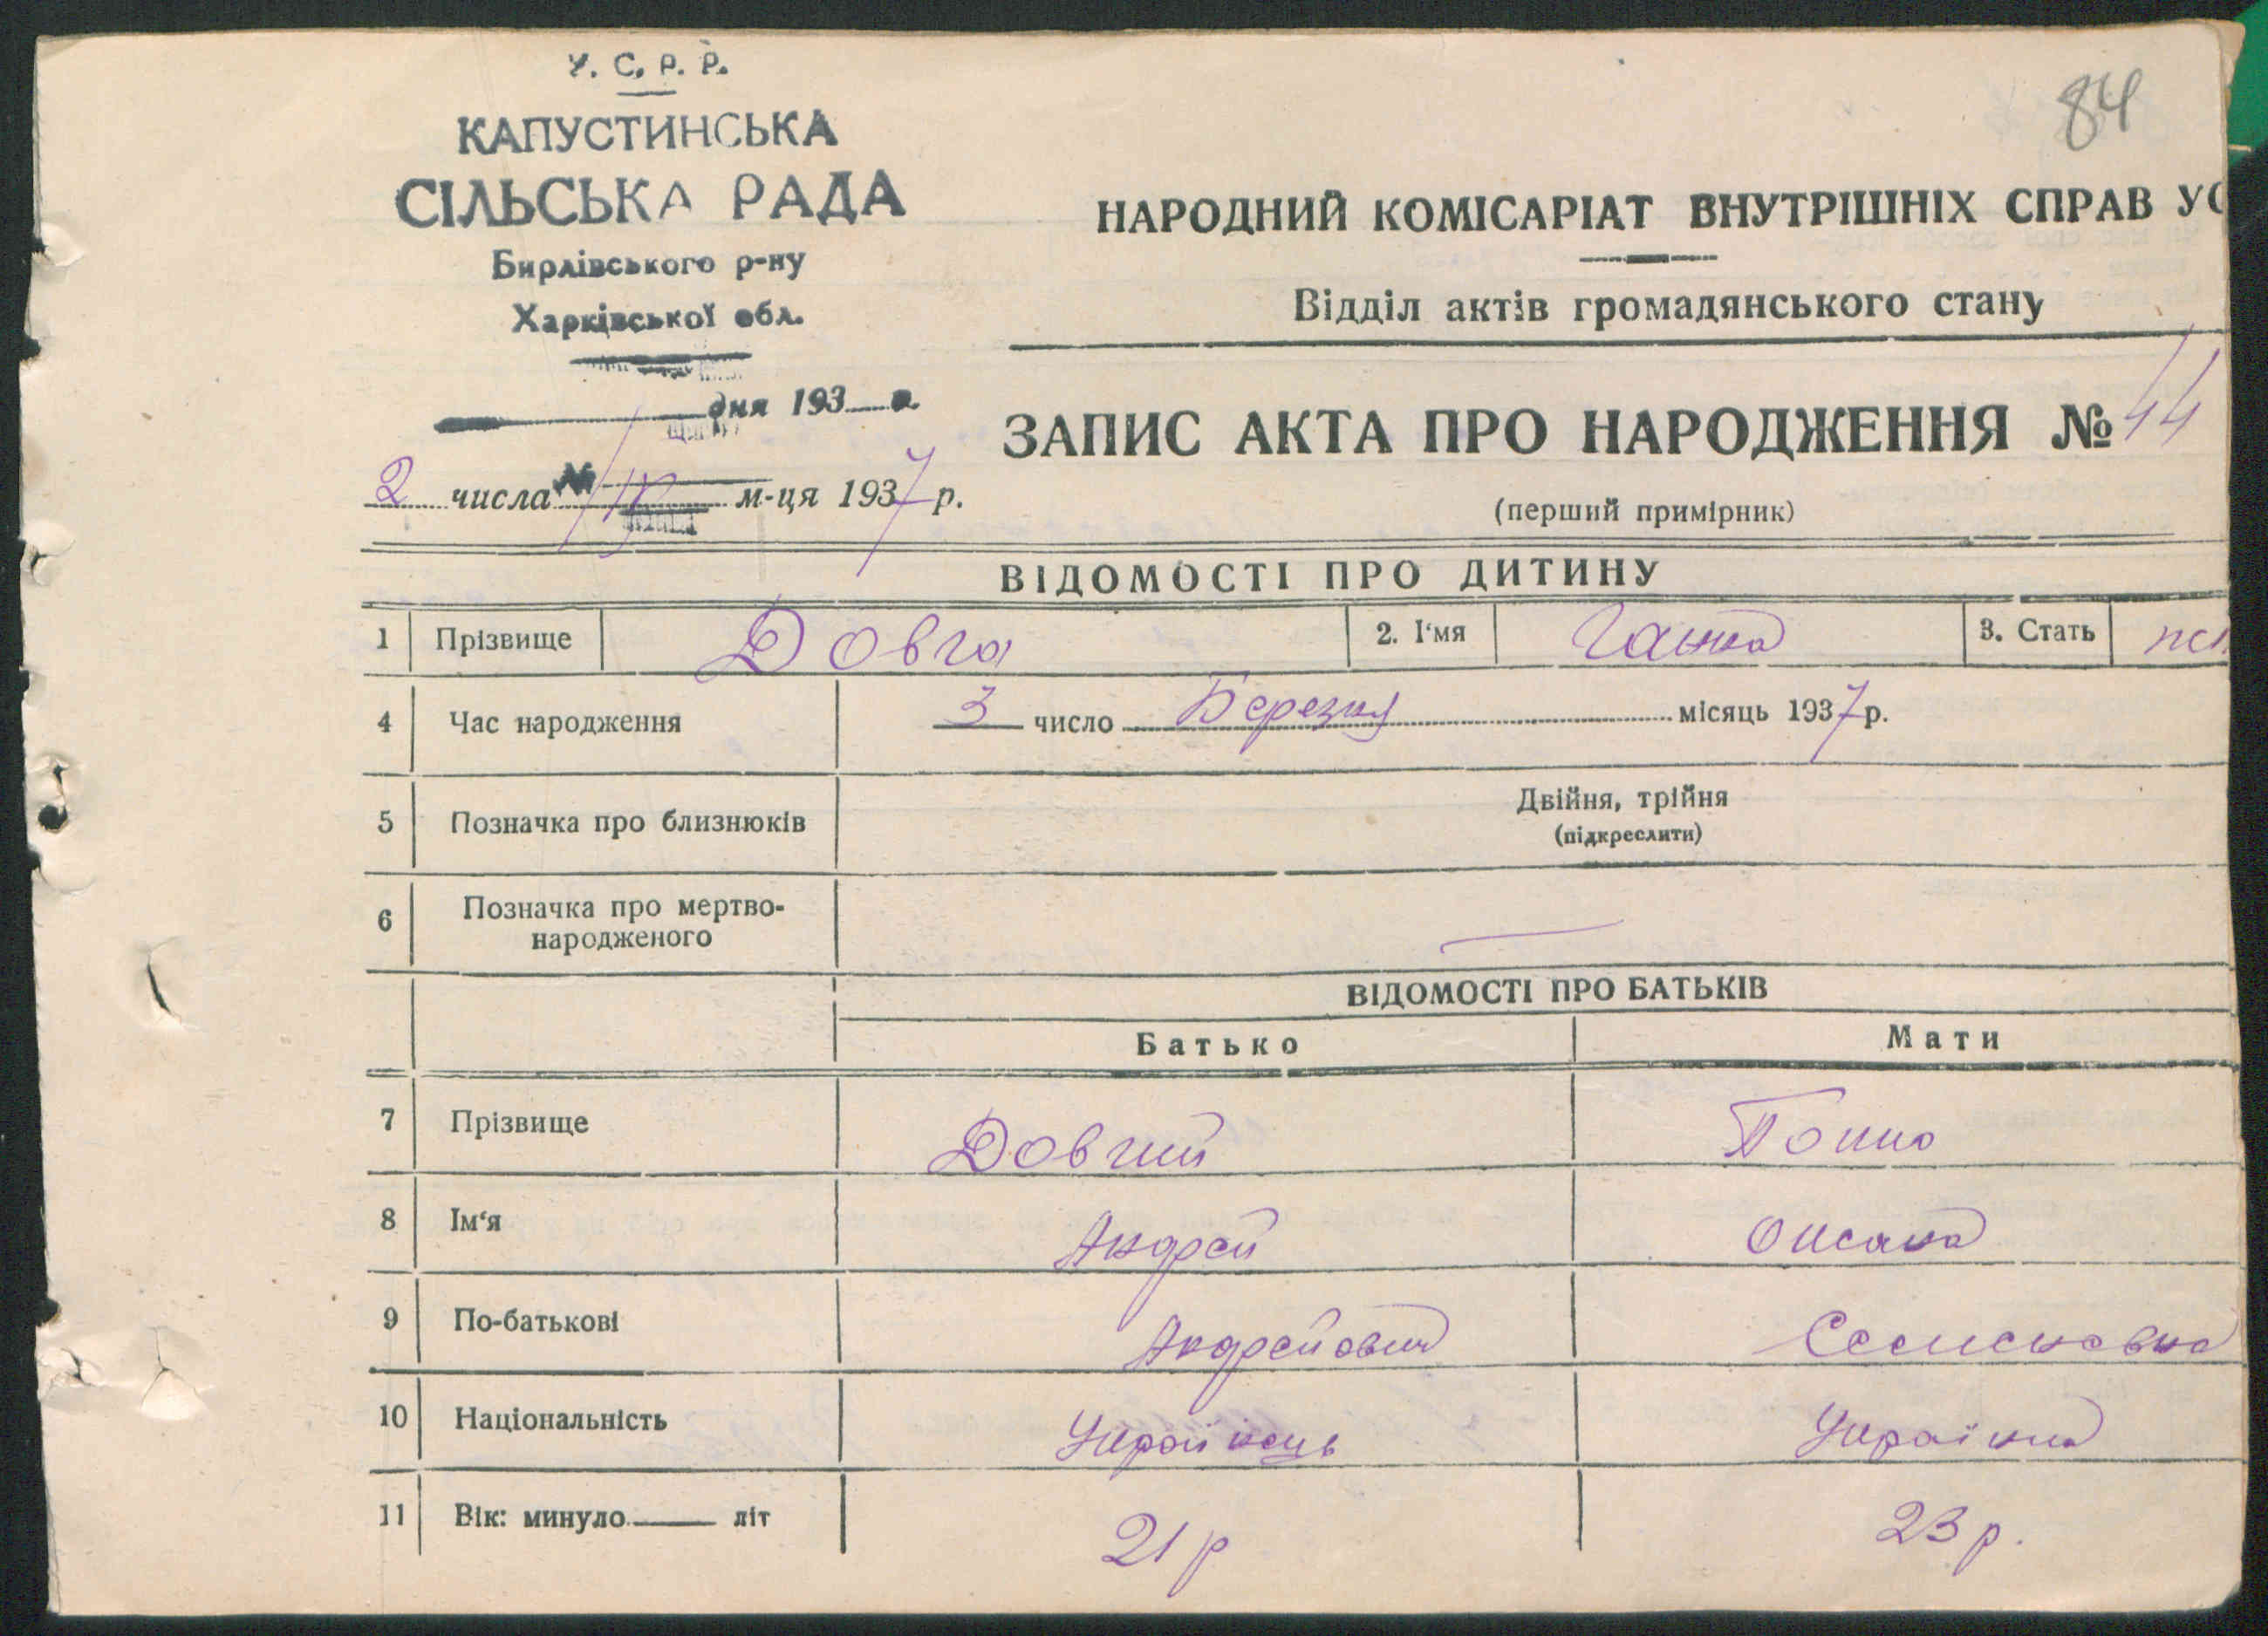 У. С. Р. Р.
84
КАПУСТИНСЬКА
СІЛЬСЬКА РАДА
Бирлівського р-ну
Харківської обл.
НАРОДНИЙ КОМІСАРІАТ ВНУТРІШНІХ СПРАВ УС
Відділ актів громадянського стану
дня 193 р.
ЗАПИС АКТА ПРО НАРОДЖЕННЯ № 44
№
2 числа IV м-ця 1937 р.
(перший примірник)
ВІДОМОСТІ ПРО ДИТИНУ
1 Прізвище Довга 2. І'мя Ганна 3. Стать
4 Час народження 3 число Березня місяць 1937 р.
5 Позначка про близнюків Двійня, трійня
(підкреслити)
6 Позначка про мертво-
народженого
ВІДОМОСТІ ПРО БАТЬКІВ
Батько Мати
7 Прізвище Довгий
8 Ім'я Андрей Оксана
9 По-батькові Андрейович Семеновна
10 Національність Українець Українка
11 Вік: минуло літ 21 р 23 р.